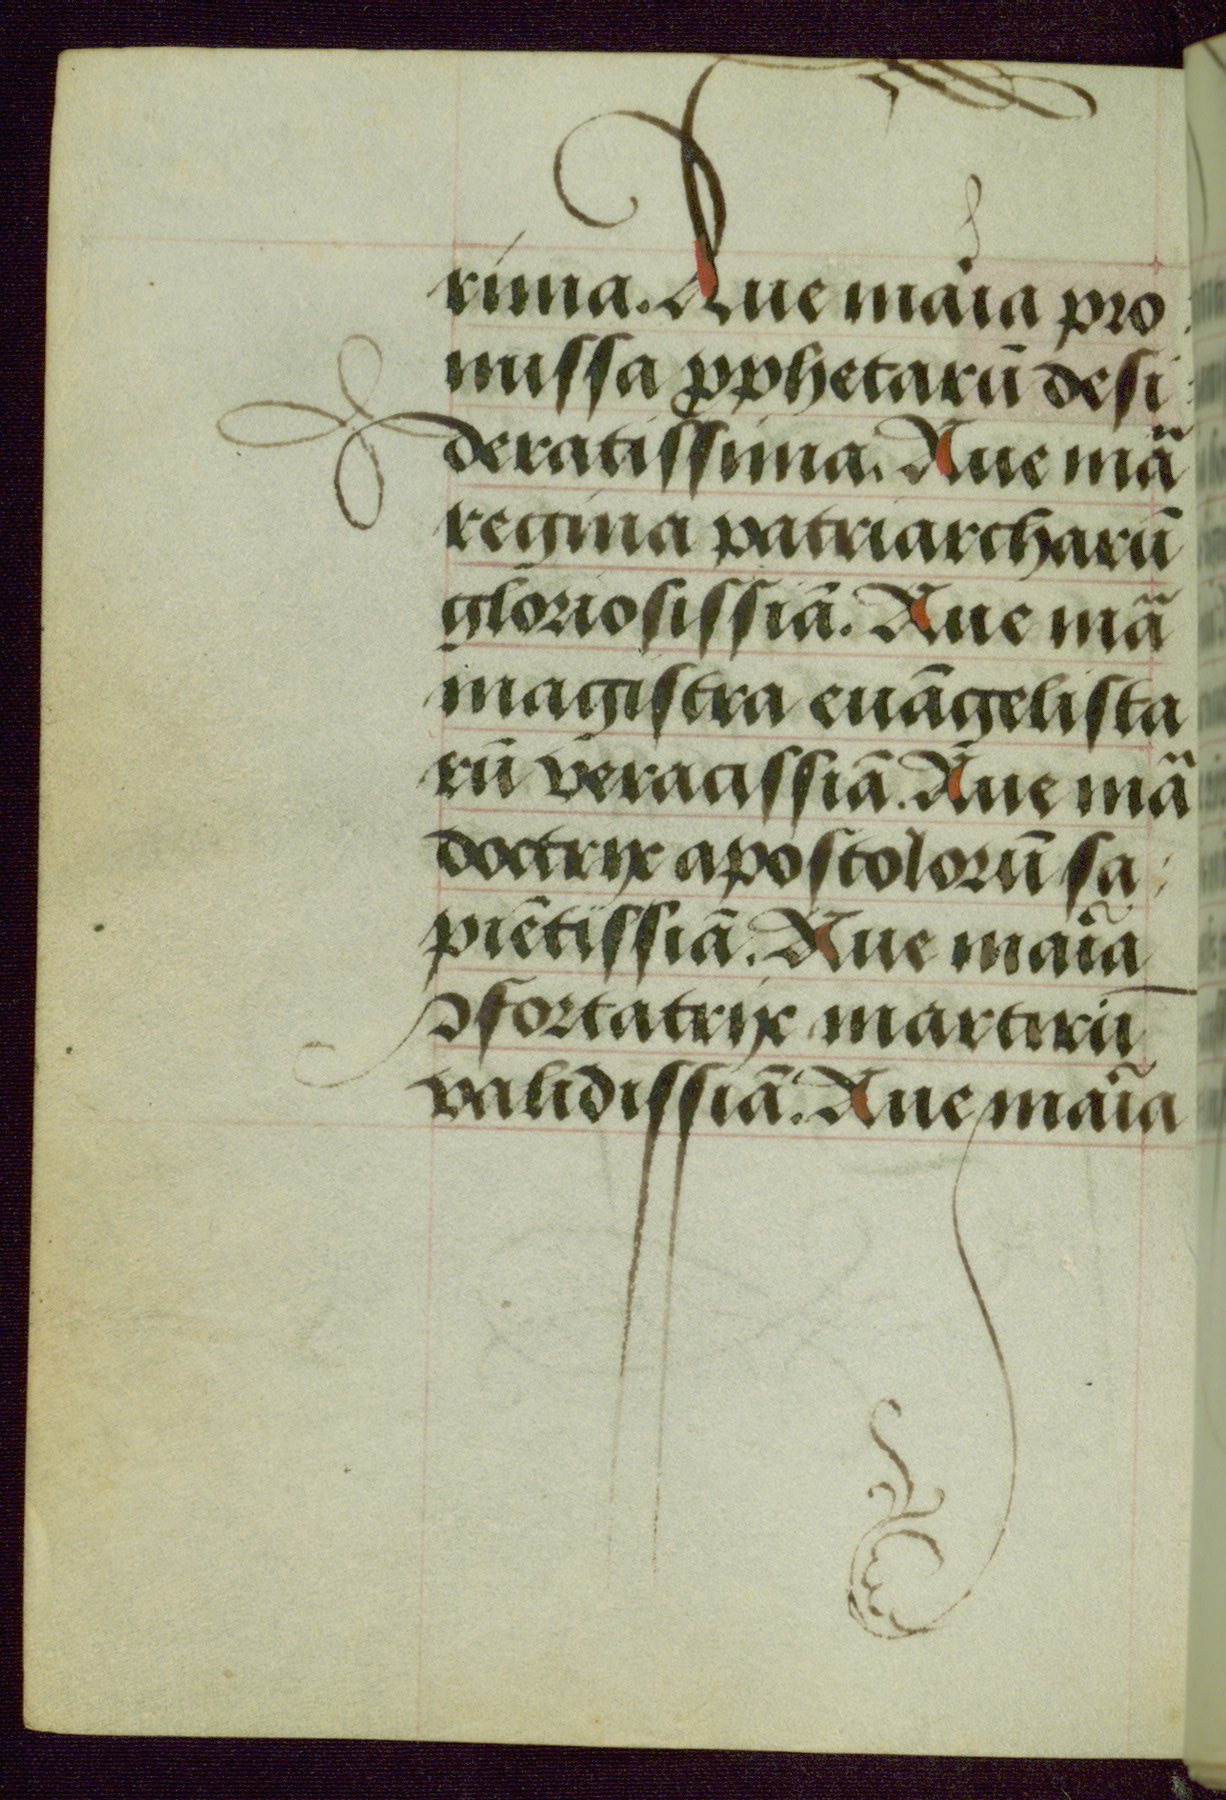 rima. Aue maia pro
missa pphetarū desi
deratissima. Aue mā
regina patriarcharū
gloriosissiā. Aue mā
magistra euāgelista
rū veracissiā. Aue mā
doctrix apostolorū sa
piētissiā. Aue maīa
ↄfortatrix martirū
validissiā. Aue maīa